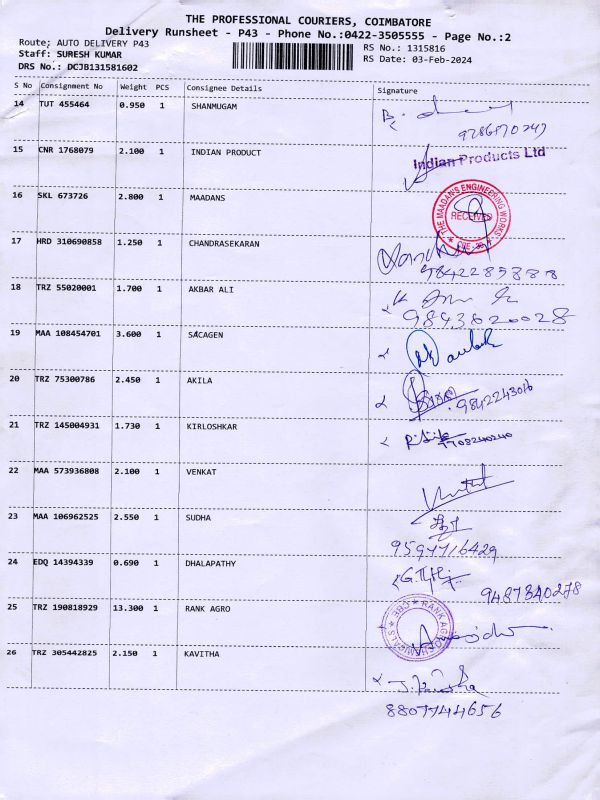 THE PROFESSIONAL COURIERS, COIMBATORE
Delivery Runsheet - P43 - Phone No.:0422-3505555 - Page No.:2
Route; AUTO DELIVERY P43
RS No.: 1315816
Staff: SURESH KUMAR
RS Date: 03-Feb-2024
DRS No.: DCJB131581602
S No Consignment No Weight PCS Consignee Details Signature
14 TUT 455464 0.950 1 SHANMUGAM
15 CNR 1768079 2.100 1 INDIAN PRODUCT
Indian Products Ltd
16 SKL 673726 2.800 1 MAADANS
THE MAADAN'S ENGINEERING WORKS
RECEIVED
17 HRD 310690858 1.250 1 CHANDRASEKARAN
9842285888
18 TRZ 55020001 1.700 1 AKBAR ALI
9843620028
19 MAA 108454701 3.600 1 SACAGEN
20 TRZ 75300786 2.450 1 AKILA
9842243016
21 TRZ 145004931 1.730 1 KIRLOSHKAR
22 MAA 573936808 2.100 1 VENKAT
23 MAA 106962525 2.550 1 SUDHA
24 EDQ 14394339 0.690 1 DHALAPATHY
9487340278
25 TRZ 190818929 13.300 1 RANK AGRO
RANK AGROCHEMICALS CBE
26 TRZ 305442825 2.150 1 KAVITHA
8807744656